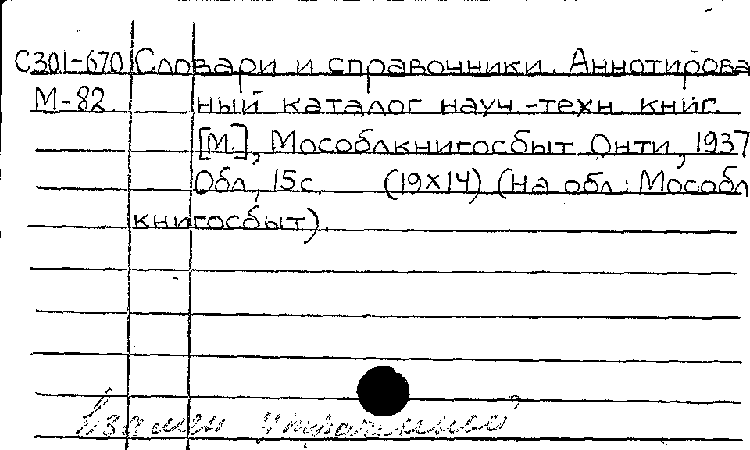 С301-670 Словари и справочники. Аннотирова
М-82. ный каталог науч.-техн. книг.
[М.], Мособлкнигосбыт Онти, 1937
Обл, 15с. (19х14) (На обл: Мособл
книгосбыт).
Взамен утраченной